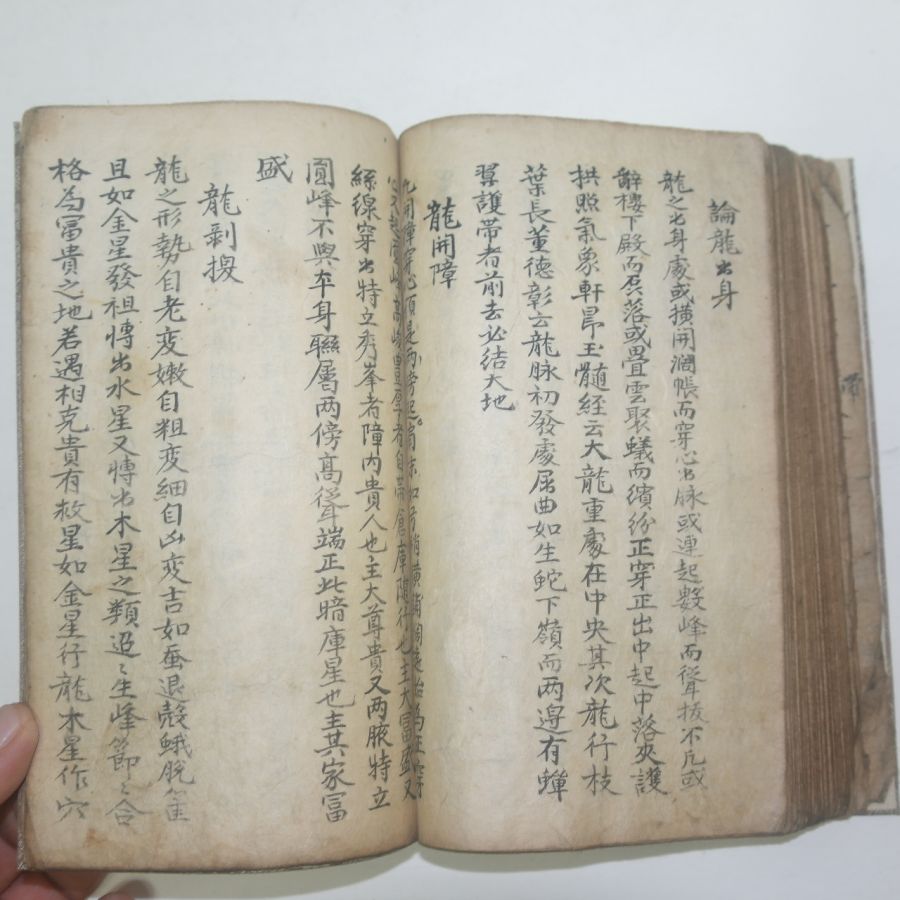 論龍出身
龍之出身處或橫開濶帳而穿心出脉或連起數峰而聳拔不凡或
辭樓下殿而层落或畳雲聚蟻而繽紛正穿正出中起中落夾護
拱照氣象軒昻玉髓経云大龍重處在中央其次龍行枝
葉長董德彰云龍脉初發處屈曲如生蛇下嶺而两邉有蟬
翼護帶者前去必結大地
龍開障
凡開障穿心須是两傍起
高峰豊厚者自帶倉庫隨行也主大富盛又
絲線穿出特立秀峯者障内貴人也主大尊貴又两腋特立
圓峰不與夲身聯屬两傍髙聳端正此暗庫星也主其家冨
盛
龍剥換
龍之形勢自老変嫩自粗変細自凶変吉如蚕退殼蛾脫
且如金星發祖轉出水星又轉出木星之類迢〻生峰節〻合
格為冨貴之地若遇相克貴有救星如金星行龍木星作穴